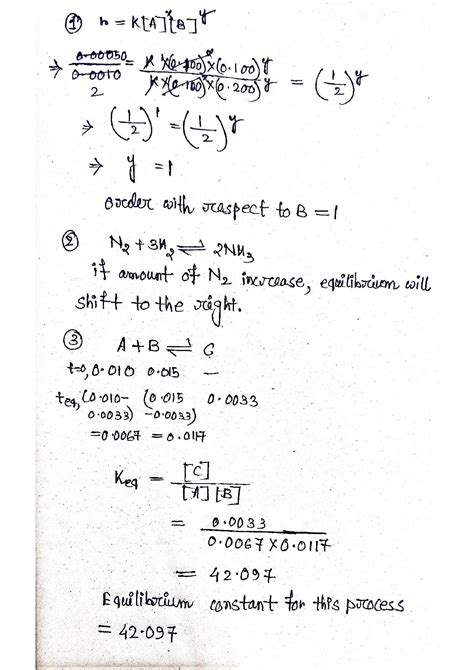 ① r = K[A]^x[B]^y
⇒ 0.00050/0.0010 = K×(0.100)^x×(0.100)^y / K×(0.100)^x×(0.200)^y = (1/2)^y
2
⇒ (1/2)^1 = (1/2)^y
⇒ y = 1
order with raspect to B = 1
② N₂ + 3H₂ ⇌ 2NH₃
if amount of N₂ increase, equilibrium will
shift to the right.
③ A + B ⇌ C
t=0, 0.010 0.015 —
teq, (0.010- (0.015 0.0033
0.0033) -0.0033)
=0.0067 = 0.0117
Keq = [C]/[A][B]
= 0.0033/0.0067×0.0117
= 42.097
Equilibrium constant for this process
= 42.097